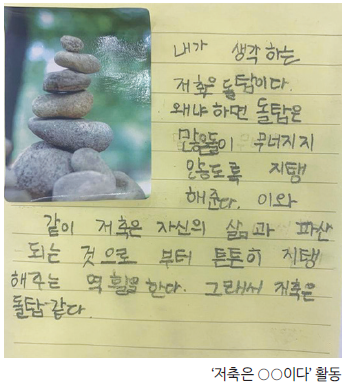 내가 생각하는
저축은 돌탑이다.
왜냐하면 돌탑은
무너지지
않도록 지탱
해준다. 이와
같이 저축은 자신의 삶과 파산
되는 것으로 부터 튼튼히 지탱
해주는 역할을 한다. 그래서 저축은
돌탑 같다.
'저축은 ○○이다' 활동